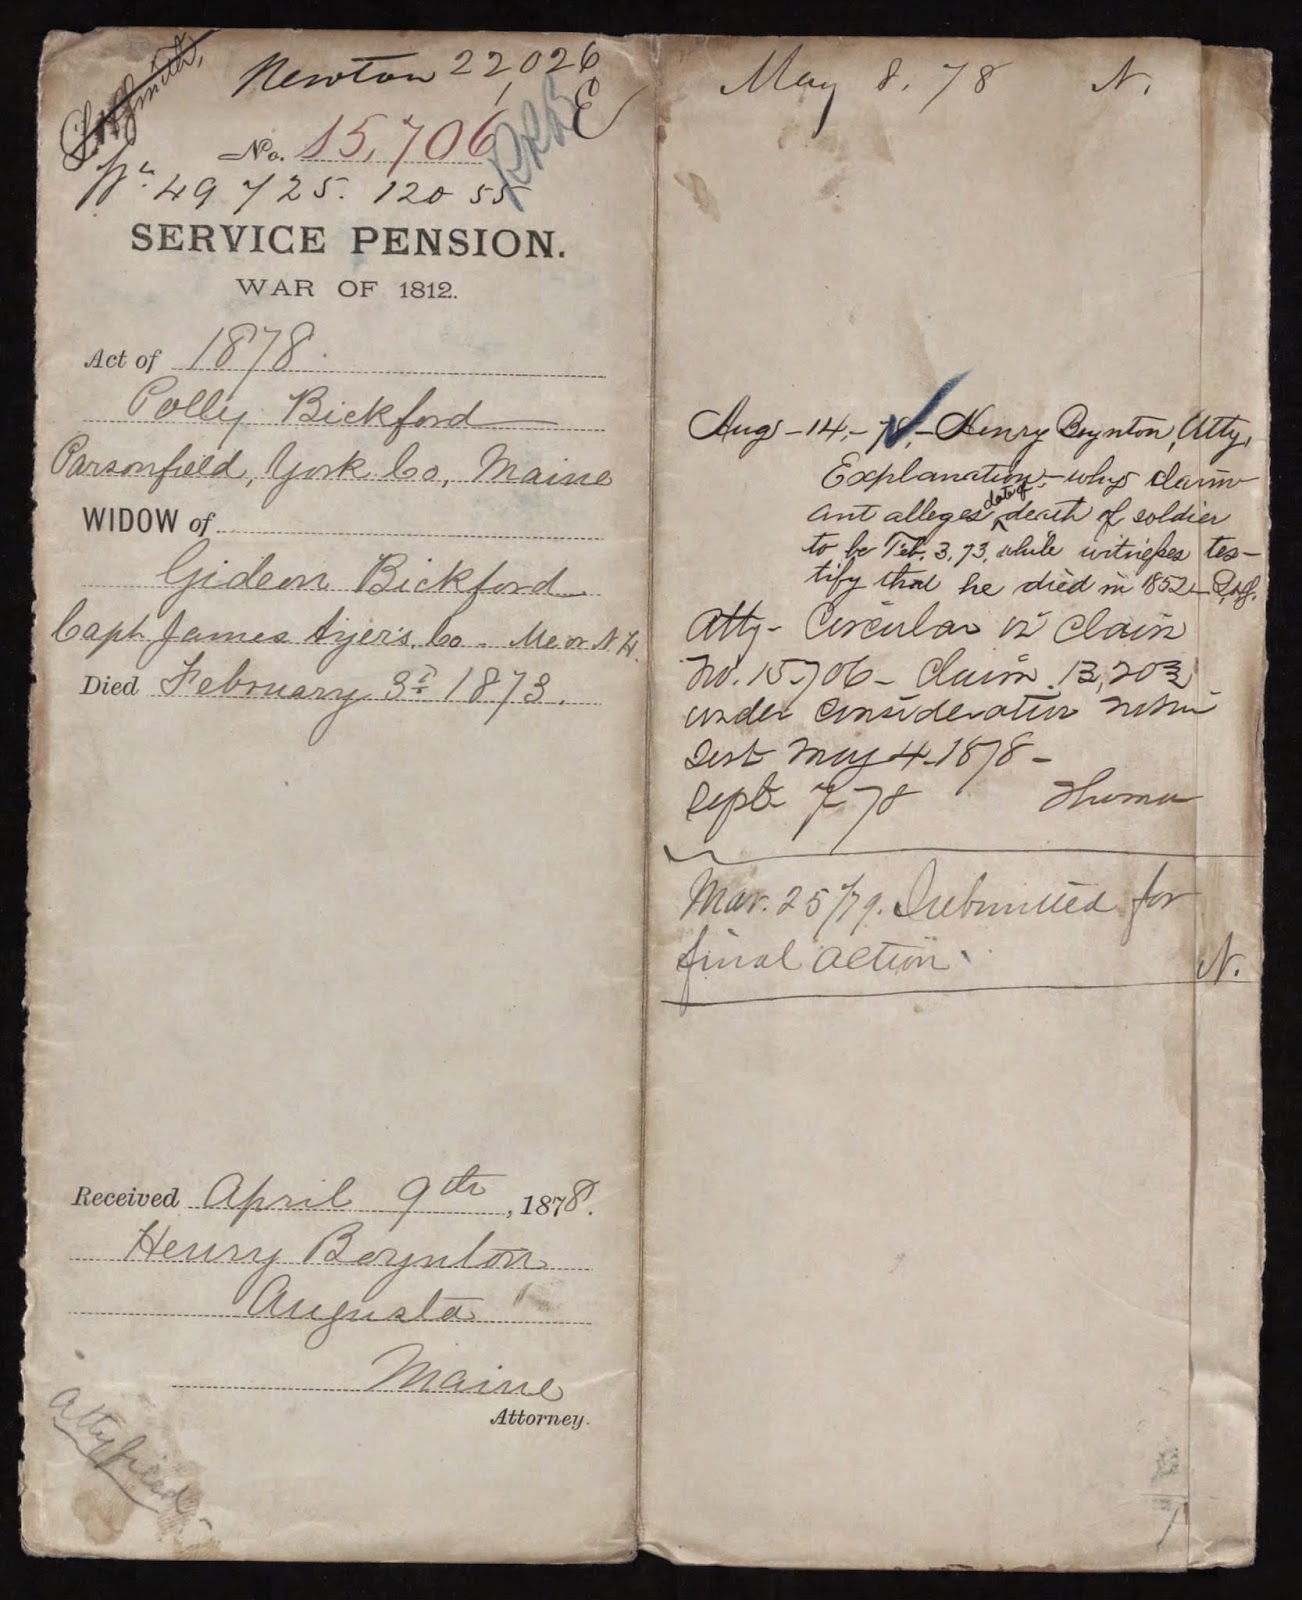 Newton 22,026
E
No. 15,706
Wr. 49725. 120 55
SERVICE PENSION.
WAR OF 1812.
Act of 1878.
Polly Bickford
Parsonfield, York Co, Maine
WIDOW of
Gideon Bickford
Capt. James Ayer's Co. Me or N.H.
Died February 3d 1873.
Received April 9th, 1878.
Henry Boynton
Augusta
Maine
Attorney.
Atty
May 8. 78 N.
Aug - 14, - 78, - Henry Boynton, Atty,
Explanation - why claim-
ant alleges date of death of soldier
to be Feb. 3, 73, while witnesses tes-
tify that he died in 1852 -
Atty - Circular in claim
No. 15706 - Claim 13,203
under consideration
Sent May 4 - 1878 -
Sept 7 - 78
Mar. 25/79. Submitted for
final action. N.